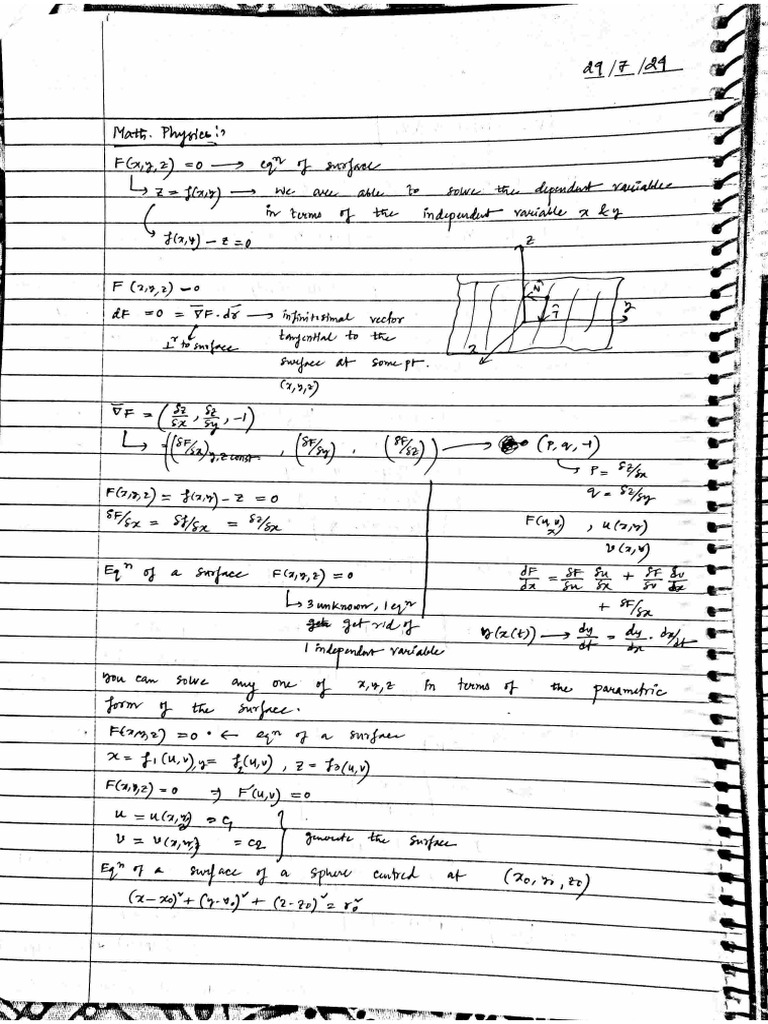 29/7/24
Math. Physics:
F(x,y,z) = 0 → eqⁿ of surface
↳ z = f(x,y) → we are able to solve the dependent variable
in terms of the independent variable x & y
↳ f(x,y) - z = 0
z
F(x,y,z) = 0
dF = 0 = ∇F . dr → infinitesimal vector
⊥ʳ to surface
tangential to the
surface at some pt.
(x,y,z)
y
x
∇F = (δz/δx, δz/δy, -1)
↳ = ((δF/δx)y,z const., (δF/δy), (δF/δz)) → (p, q, -1)
↳ p = δz/δx
q = δz/δy
F(x,y,z) = f(x,y) - z = 0
δF/δx = δf/δx = δz/δx
F(u,v) , u(x,y)
x
v(x,y)
Eqⁿ of a surface F(x,y,z) = 0
dF/dx = δF/δu δu/δx + δF/δv δv/δx
+ δF/δx
↳ 3 unknown, 1 eqⁿ
get rid of
1 independent variable
y(x(t)) → dy/dt = dy/dx . dx/dt
you can solve any one of x,y,z in terms of the parametric
form of the surface.
F(x,y,z) = 0 . ← eqⁿ of a surface
x = f1(u,v), y = f2(u,v), z = f3(u,v)
F(x,y,z) = 0 ⇒ F(u,v) = 0
u = u(x,y,z) = c1
v = v(x,y,z) = c2
generate the surface
Eqⁿ of a surface of a sphere centred at (x0, y0, z0)
(x-x0)² + (y-y0)² + (z-z0)² = r0²